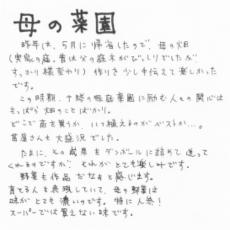 母の菜園
昨年は、5月に帰海したので、母の畑
(実家の庭。昔は父の庭木がびっしりでしたが
すっかり様変わり)作りを少し手伝えて楽しかった
です。
この時期、千緑の家庭菜園に励む人々の関心は
もっぱら畑のことばかり。
どこで苗を買うか、いつ植えるのがベストか…。
苗屋さんも大盛況でした。
たまに、その成果をダンボールに詰めて送って
くれるのですが、それがとても楽しみです。
野菜も作品だなぁと感じます。
育てる人を表現していて、母の野菜は
味がとても濃いのです。特に人参!
スーパーでは買えない味です。